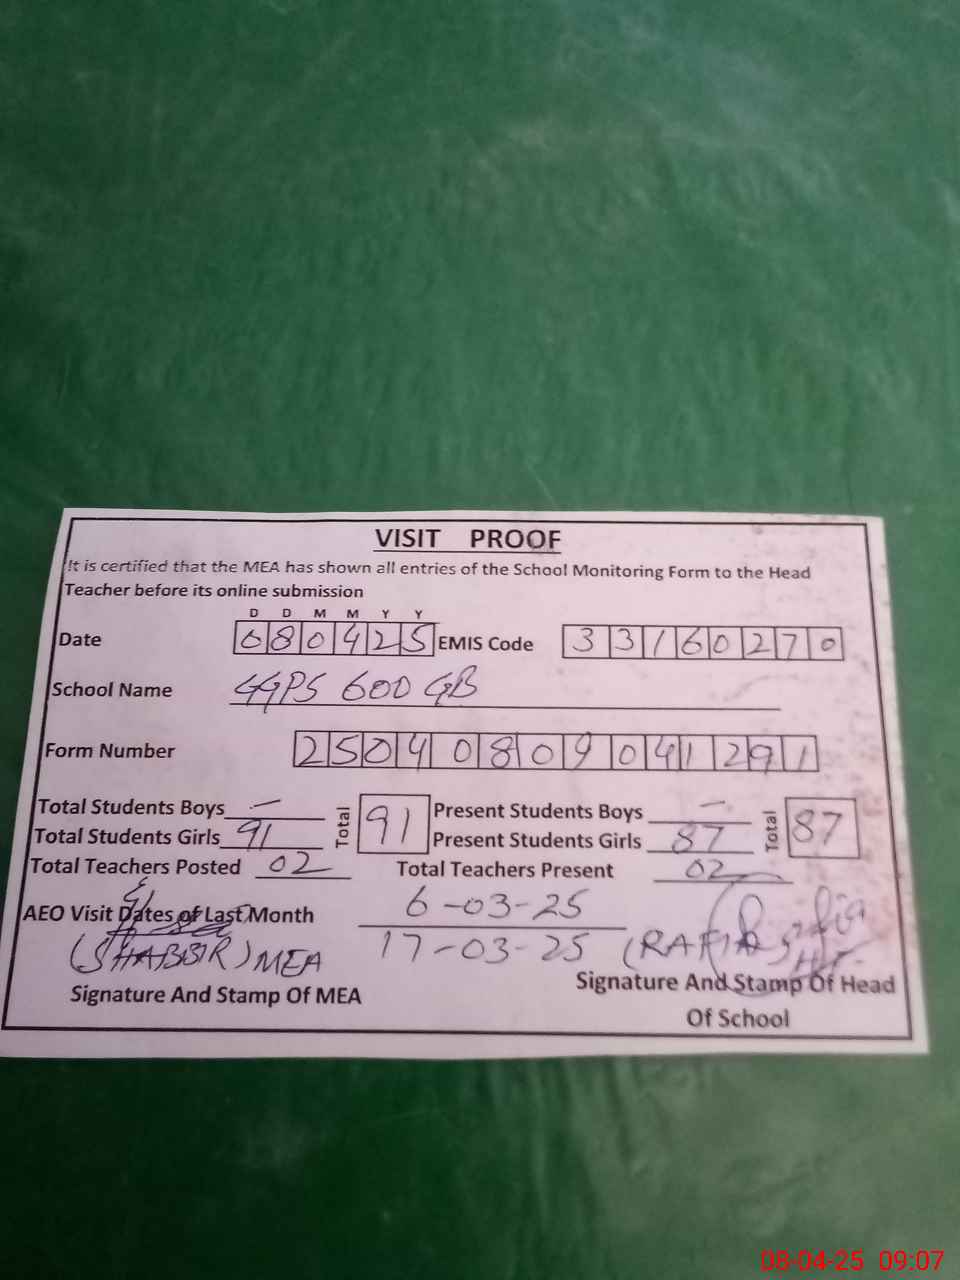 VISIT PROOF
It is certified that the MEA has shown all entries of the School Monitoring Form to the Head
Teacher before its online submission
D D M M Y Y
Date 080425 EMIS Code 33160270
School Name GGPS 600 GB
Form Number 25040809041291
Total Students Boys — Total 91 Present Students Boys — Total 87
Total Students Girls 91 Present Students Girls 87
Total Teachers Posted 02 Total Teachers Present 02
AEO Visit Dates of Last Month 6-03-25
(SHABBIR) MEA 17-03-25 (RAFIA)
Signature And Stamp Of MEA Signature And Stamp Of Head
Of School
08-04-25 09:07